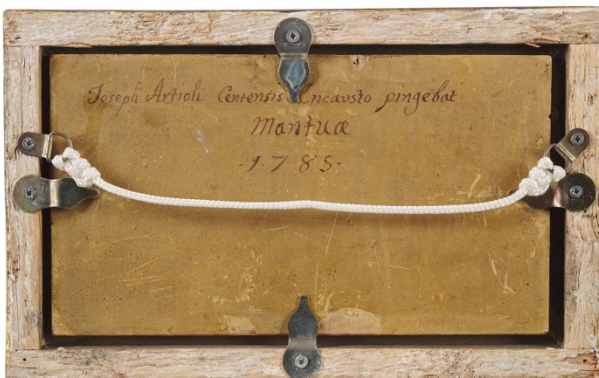 Joseph Artioli Centensis Encausto pingebat
Mantuæ
.1785.